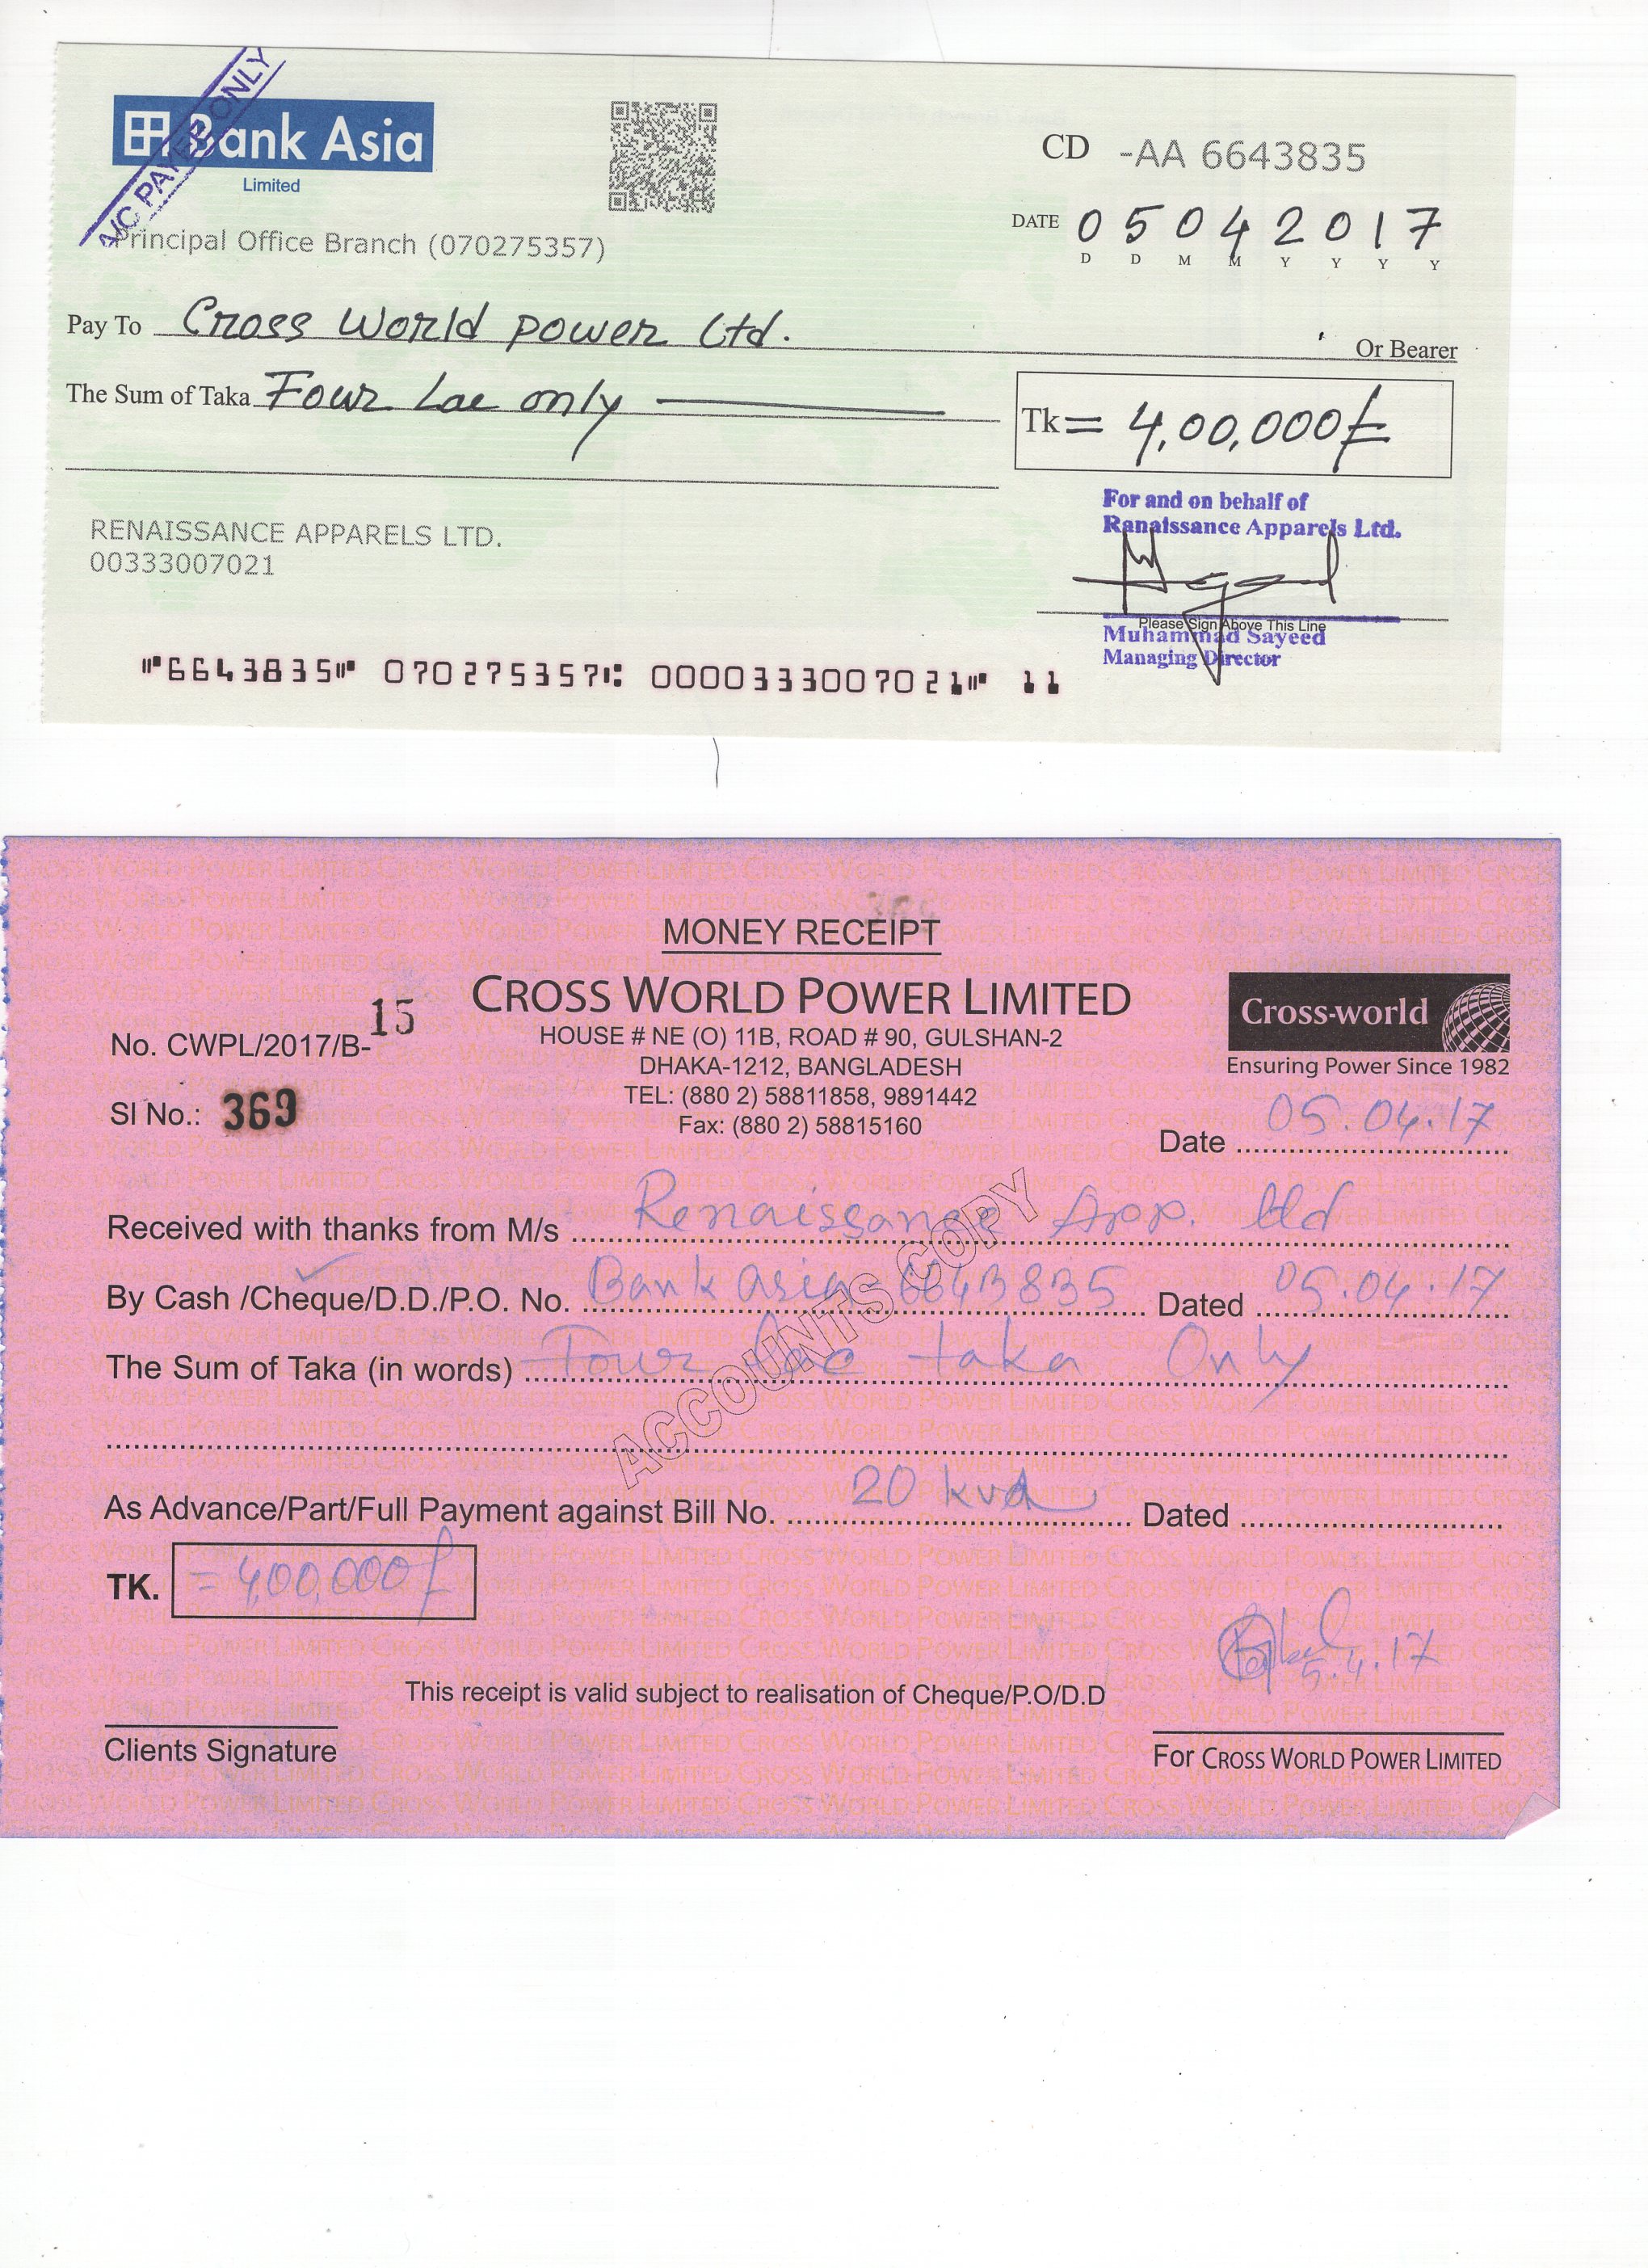 A/C PAYEE ONLY
Bank Asia
Limited
CD -AA 6643835
DATE 05042017
D D M M Y Y Y Y
Principal Office Branch (070275357)
Pay To Cross World power Ltd. Or Bearer
The Sum of Taka Four Lac only
Tk = 4,00,000/=
For and on behalf of
Ranaissance Apparels Ltd.
RENAISSANCE APPARELS LTD.
00333007021
Please Sign Above This Line
Muhammad Sayeed
Managing Director
⑈6643835⑈ 070275357⑆ 0000333007021⑈ 11
MONEY RECEIPT
CROSS WORLD POWER LIMITED
HOUSE # NE (O) 11B, ROAD # 90, GULSHAN-2
DHAKA-1212, BANGLADESH
TEL: (880 2) 58811858, 9891442
Fax: (880 2) 58815160
Cross-world
Ensuring Power Since 1982
No. CWPL/2017/B-15
Sl No.: 369
Date 05.04.17
Received with thanks from M/s Renaissance App. Ltd
By Cash /Cheque/D.D./P.O. No. Bank asia 6643835 Dated 05.04.17
The Sum of Taka (in words) Four Lac taka Only
ACCOUNTS COPY
As Advance/Part/Full Payment against Bill No. 20 kva Dated
TK. = 4,00,000/
5.4.17
This receipt is valid subject to realisation of Cheque/P.O/D.D
Clients Signature
For CROSS WORLD POWER LIMITED